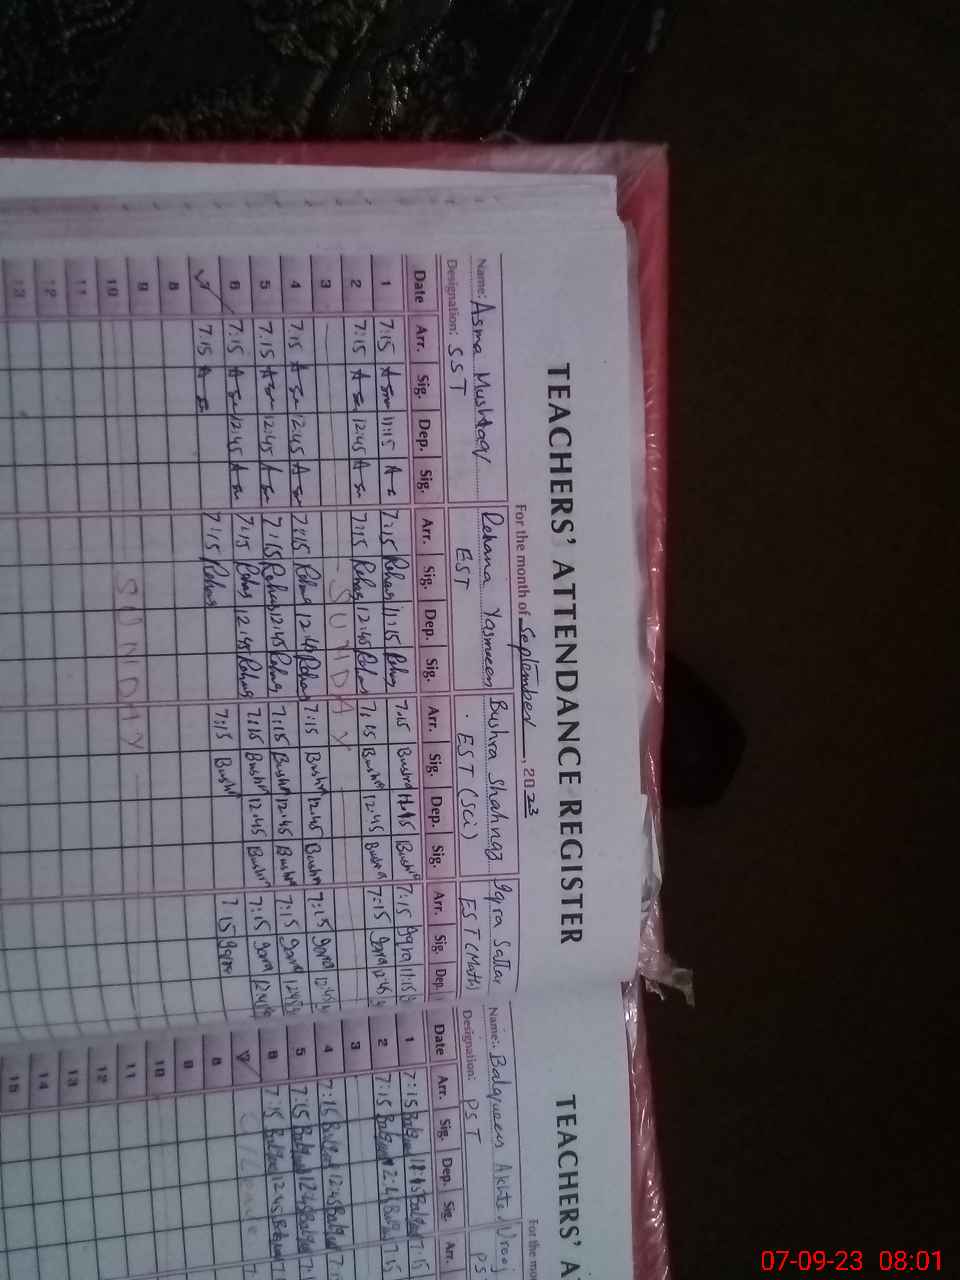 TEACHERS' ATTENDANCE REGISTER
For the month of September, 2023
Name: Asma Mushtaq Rehana Yasmeen Bushra Shahnaz Iqra Sattar
Designation: SST EST EST (Sci) EST (Math)
Date Arr. Sig. Dep. Sig. Arr. Sig. Dep. Sig. Arr. Sig. Dep. Sig. Arr. Sig. Dep.
1 7:15 11:15 7:15 Rehana 11:15 Rehana 7:15 Bushra 11:15 Bushra 7:15 Iqra 11:15
2 7:15 12:45 7:15 Rehana 12:45 Rehana 7:15 Bushra 12:45 Bushra 7:15 Iqra 12:45
3 SUNDAY
4 7:15 12:45 7:15 Rehana 12:45 Rehana 7:15 Bushra 12:45 Bushra 7:15 Iqra 12:45
5 7:15 12:45 7:15 Rehana 12:45 Rehana 7:15 Bushra 12:45 Bushra 7:15 Iqra 12:45
6 7:15 12:45 7:15 Rehana 12:45 Rehana 7:15 Bushra 12:45 Bushra 7:15 Iqra 12:45
7 7:15 7:15 Rehana 7:15 Bushra 7:15 Iqra
8
9
10 SUNDAY
11
12
13
TEACHERS' A
For the mo
Name: Balqees Akhter Urooj
Designation: PST PS
Date Arr. Sig. Dep. Sig. Arr.
1 7:15 11:15 7:15
2 7:15 12:45 7:15
3
4 7:15 12:45
5 7:15 12:45
6 7:15 12:45
7 C/Leave
8
9
10
11
12
13
14
15
07-09-23 08:01